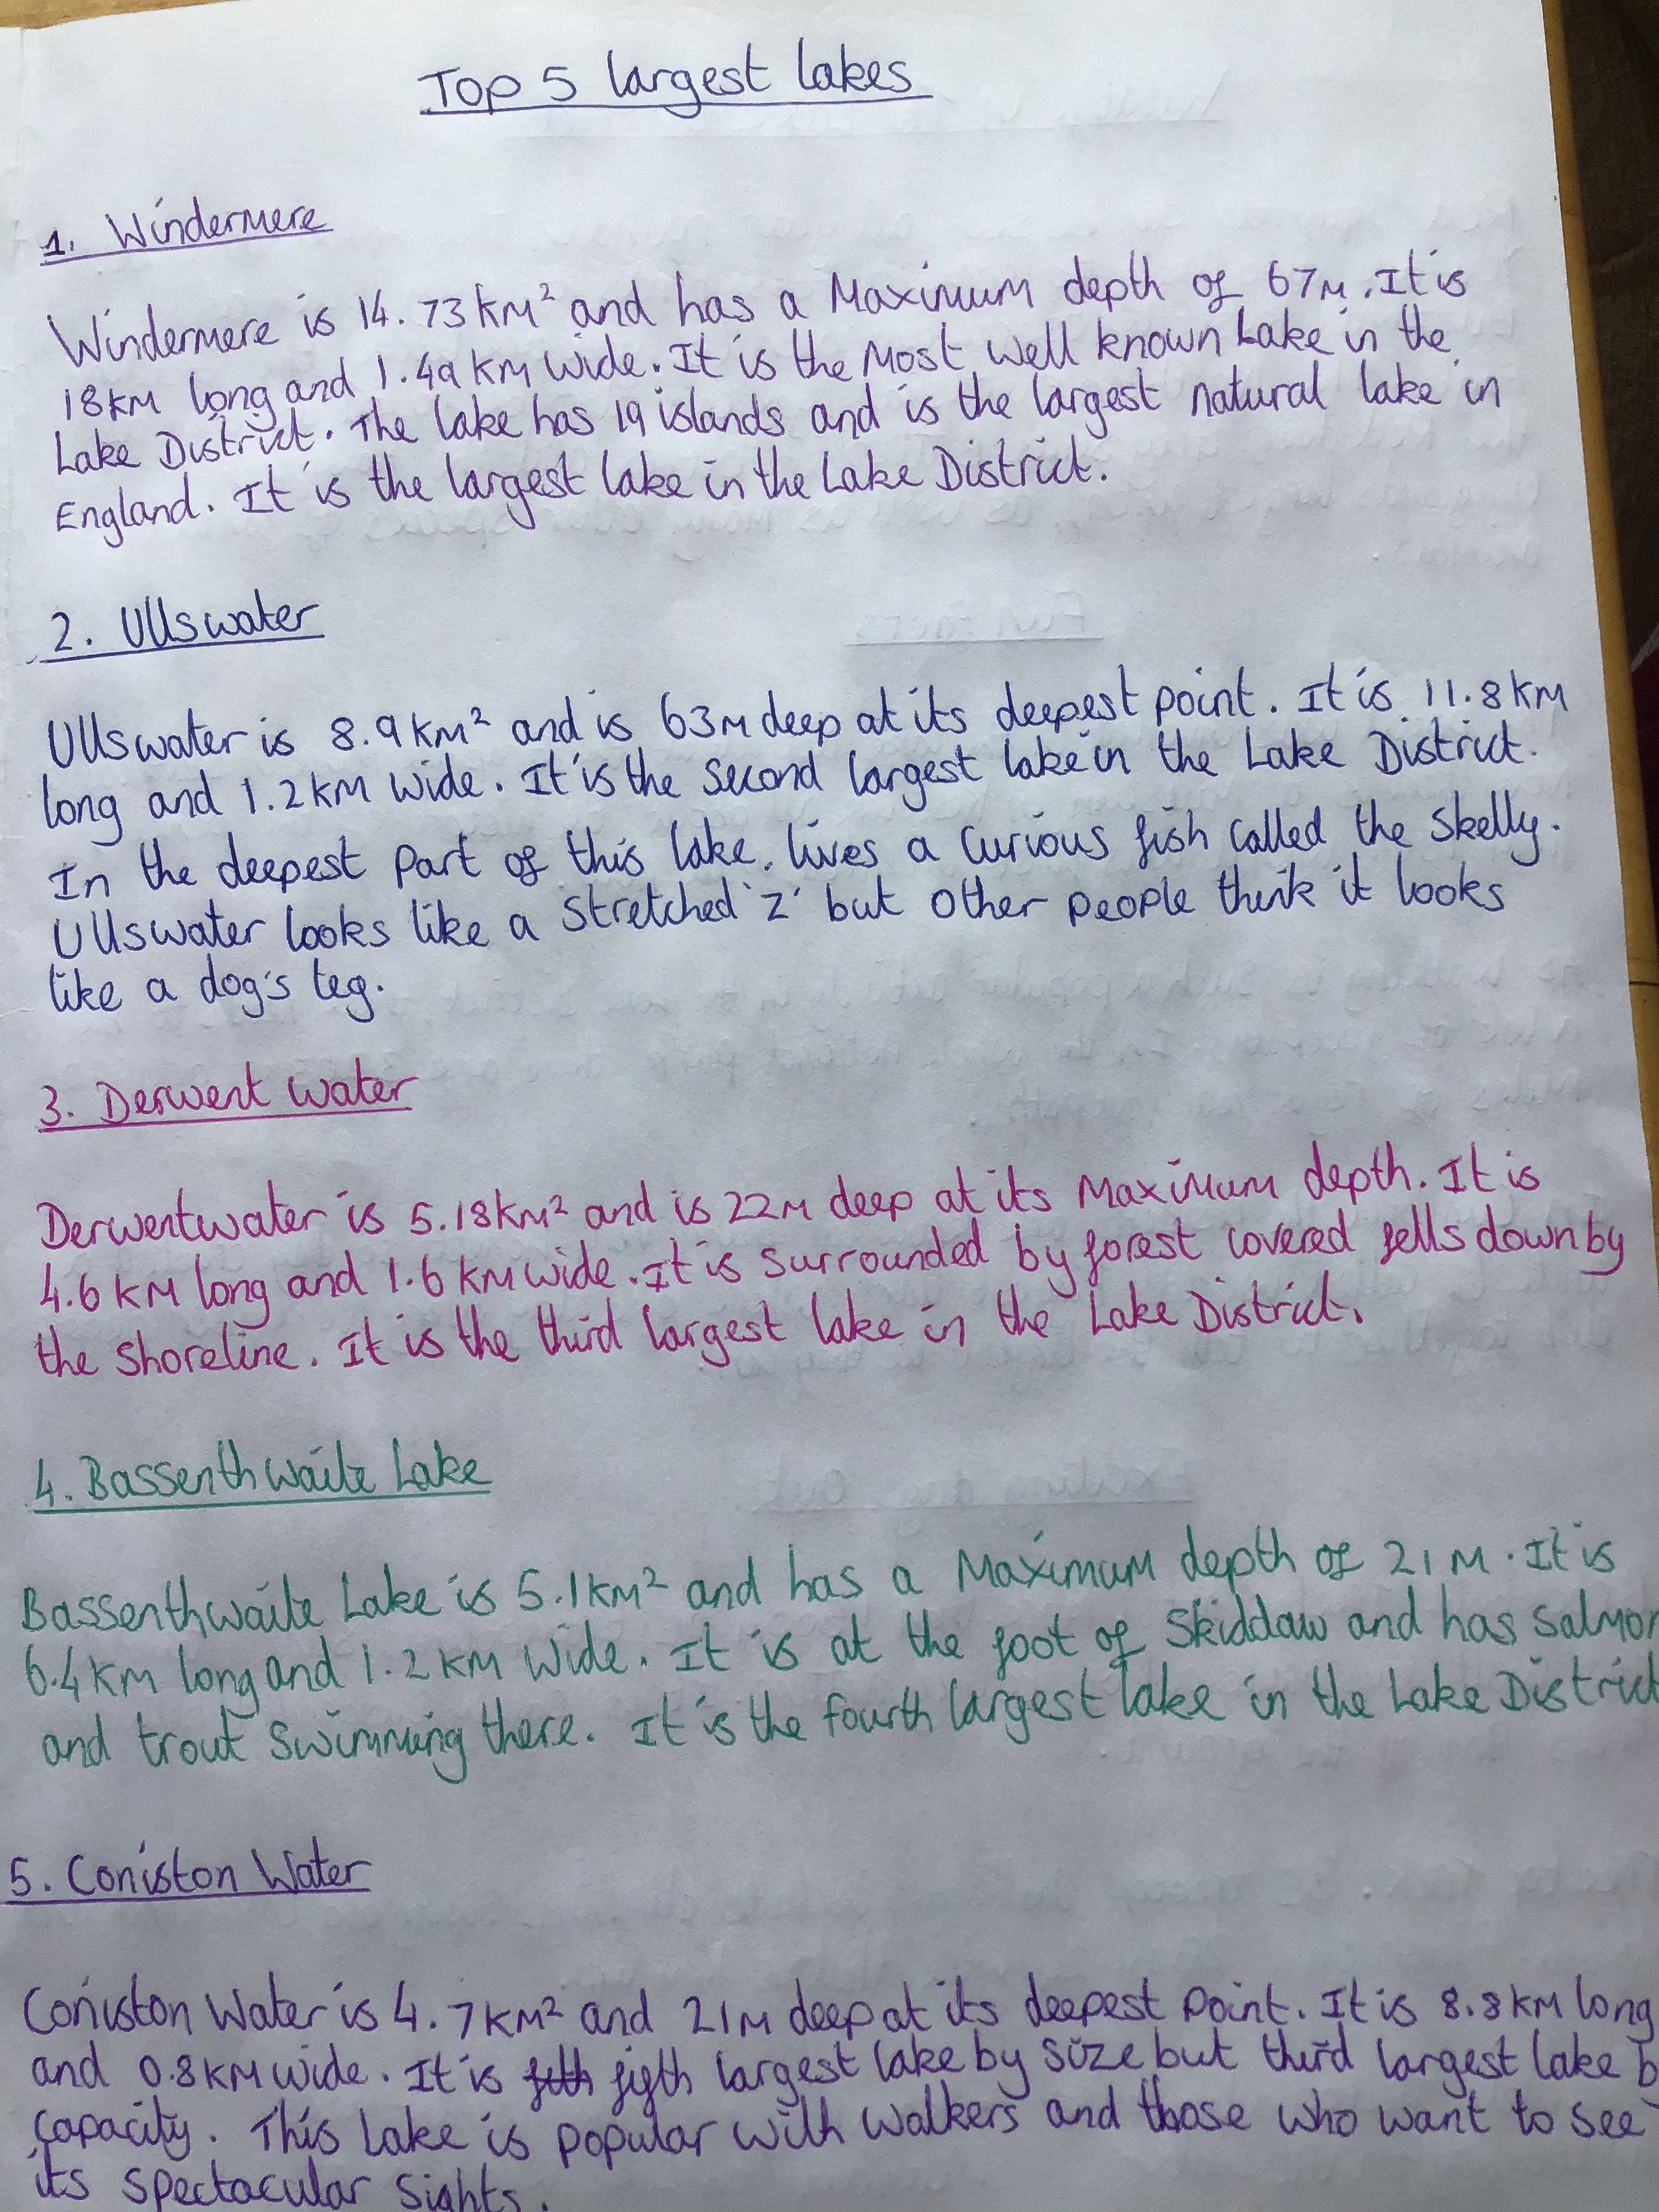 Top 5 largest lakes
1. Windermere
Windermere is 14.73km² and has a Maximum depth of 67m. It is
18km long and 1.49km wide. It is the Most well known Lake in the
Lake District. The lake has 19 islands and is the largest natural lake in
England. It is the largest lake in the Lake District.
2. Ullswater
Ullswater is 8.9km² and is 63m deep at its deepest point. It is 11.8km
long and 1.2km wide. It is the second largest lake in the Lake District.
In the deepest part of this lake, lives a curious fish called the Skelly.
Ullswater looks like a stretched 'z' but other people think it looks
like a dog's leg.
3. Derwent water
Derwentwater is 5.18km² and is 22m deep at its Maximum depth. It is
4.6km long and 1.6km wide. It is surrounded by forest covered fells down by
the shoreline. It is the third largest lake in the Lake District.
4. Bassenthwaite Lake
Bassenthwaite Lake is 5.1km² and has a Maximum depth of 21m. It is
6.4km long and 1.2km wide. It is at the foot of Skiddaw and has salmon
and trout swimming there. It is the fourth largest lake in the Lake District
5. Coniston Water
Coniston Water is 4.7km² and 21m deep at its deepest point. It is 8.8km long
and 0.8km wide. It is fifth largest lake by size but third largest lake b
capacity. This Lake is popular with walkers and those who want to see
its spectacular sights.